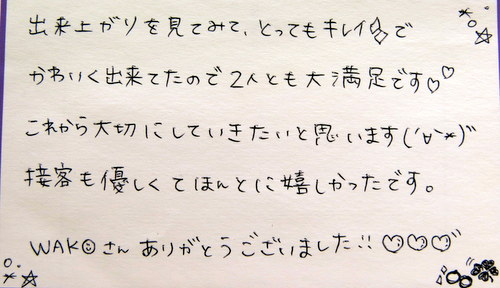 出来上がりを見てみて、とってもキレイ✨で
かわいく出来てたので2人とも大満足です♡♡
これから大切にしていきたいと思います(´∀`*)ﾞ
接客も優しくてほんとに嬉しかったです。
WAKO☺さんありがとうございました!!♡♡♡